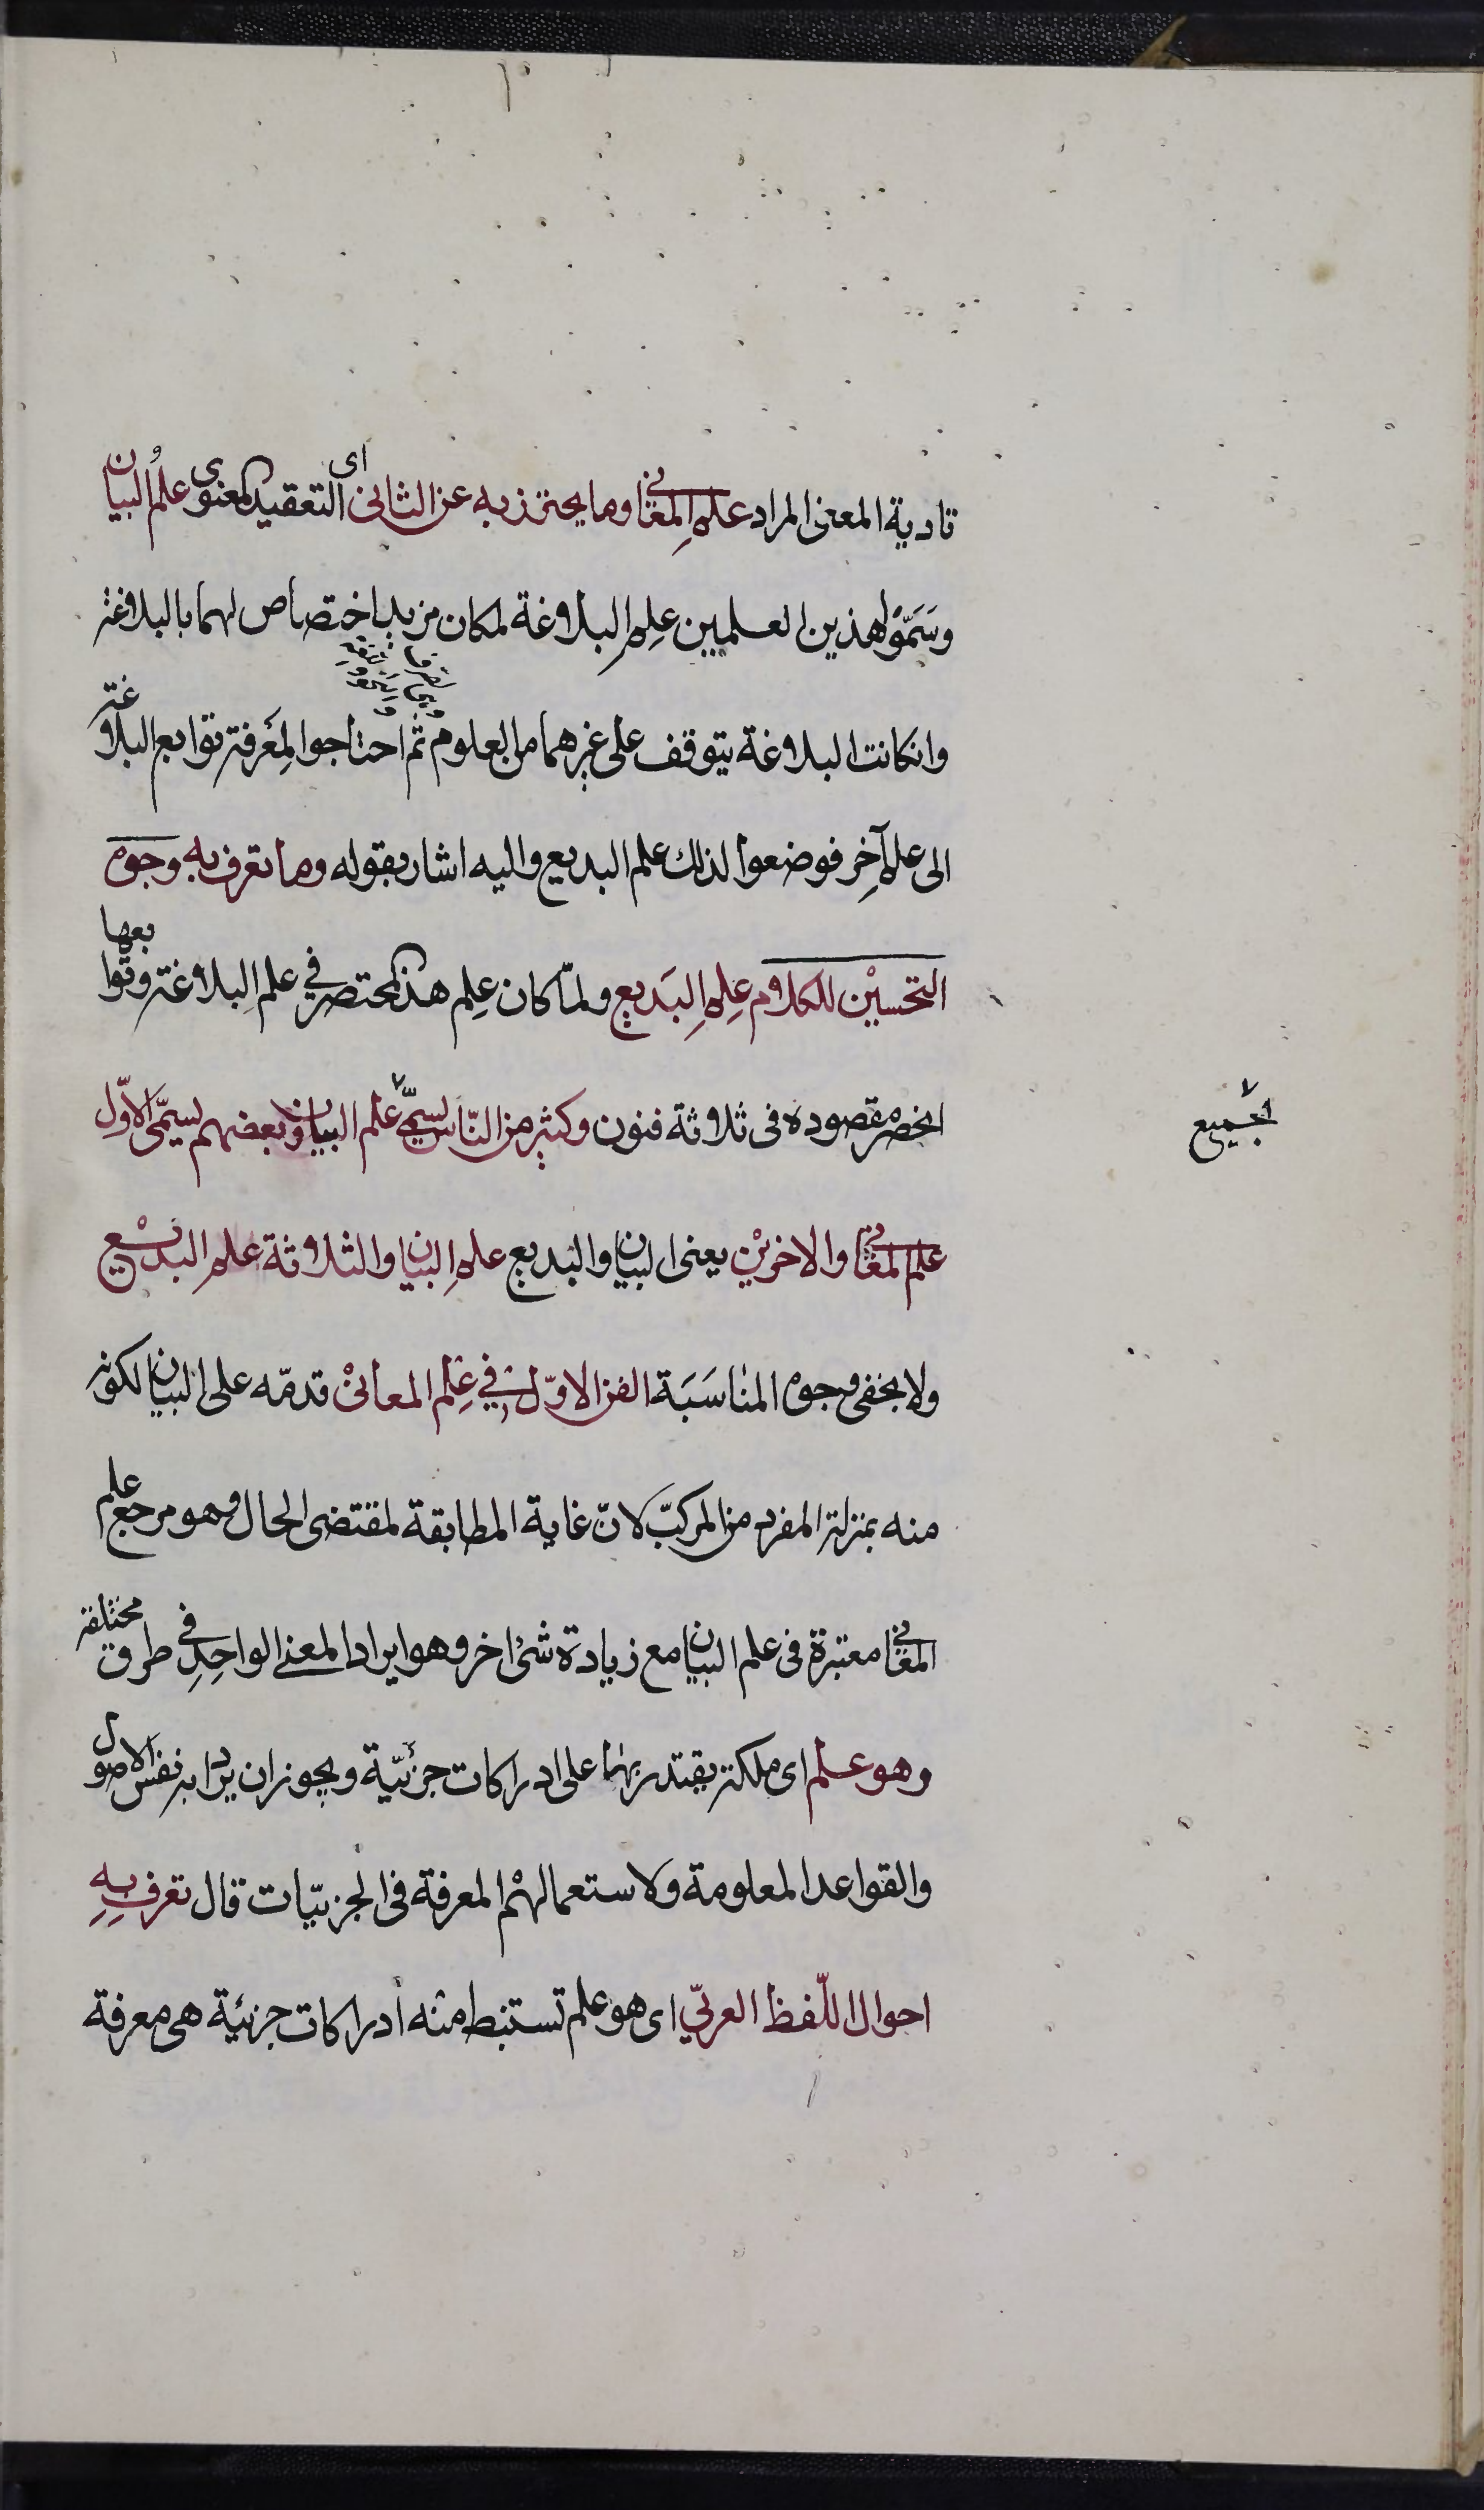 تادية المعنى المراد علم المعانى وما يحترز به عن الثانى اى التعقيد المعنوى علم البيان
وسَمّوْا هذين العلمين علم البلاغة لمكان مزيد اختصاص لهما بالبلاغة
وان كانت البلاغة يتوقف على غيرهما من العلوم ثم احتاجوا لمعرفة توابع البلاغة
الى علم آخر فوضعوا لذلك علم البديع واليه اشار بقوله وما تعرف به وجوه
التحسيْن للكلام علم البَديع ولمّا كان علم هذا المختصر فى علم البلاغة وتوابعها
انحصر مقصوده فى ثلاثة فنون وكثير من النّاس يسمّى علم البيان وبعضهم يسمّى الاوّل
الجميع
علم المعانى والاخريْن يعنى البيان والبديع علم البيان والثلاثة علم البديع
ولا يخفى وجوه المناسَبَة الفن الاوّل فى علم المعانىْ قدمّه على البيان لكونه
منه بمنزلة المفرد من المركبّ لانّ غاية المطابقة لمقتضى الحال وهو مرجع علم
المعانى معتبرة فى علم البيان مع زيادة شئ اخر وهو ايراد المعنى الواحد فى طرق مختلفة
وهو علم اى ملكة يقتدر بها على ادراكات جزئيّة ويجوز ان يراد به نفس الاصول
والقواعد المعلومة ولاستعمالهم المعرفة فى الجزئيّات قال تعرف بِهِ
احوال اللّفظ العربّى اى هو علم تستنبط منه ادراكات جزئية هى معرفة